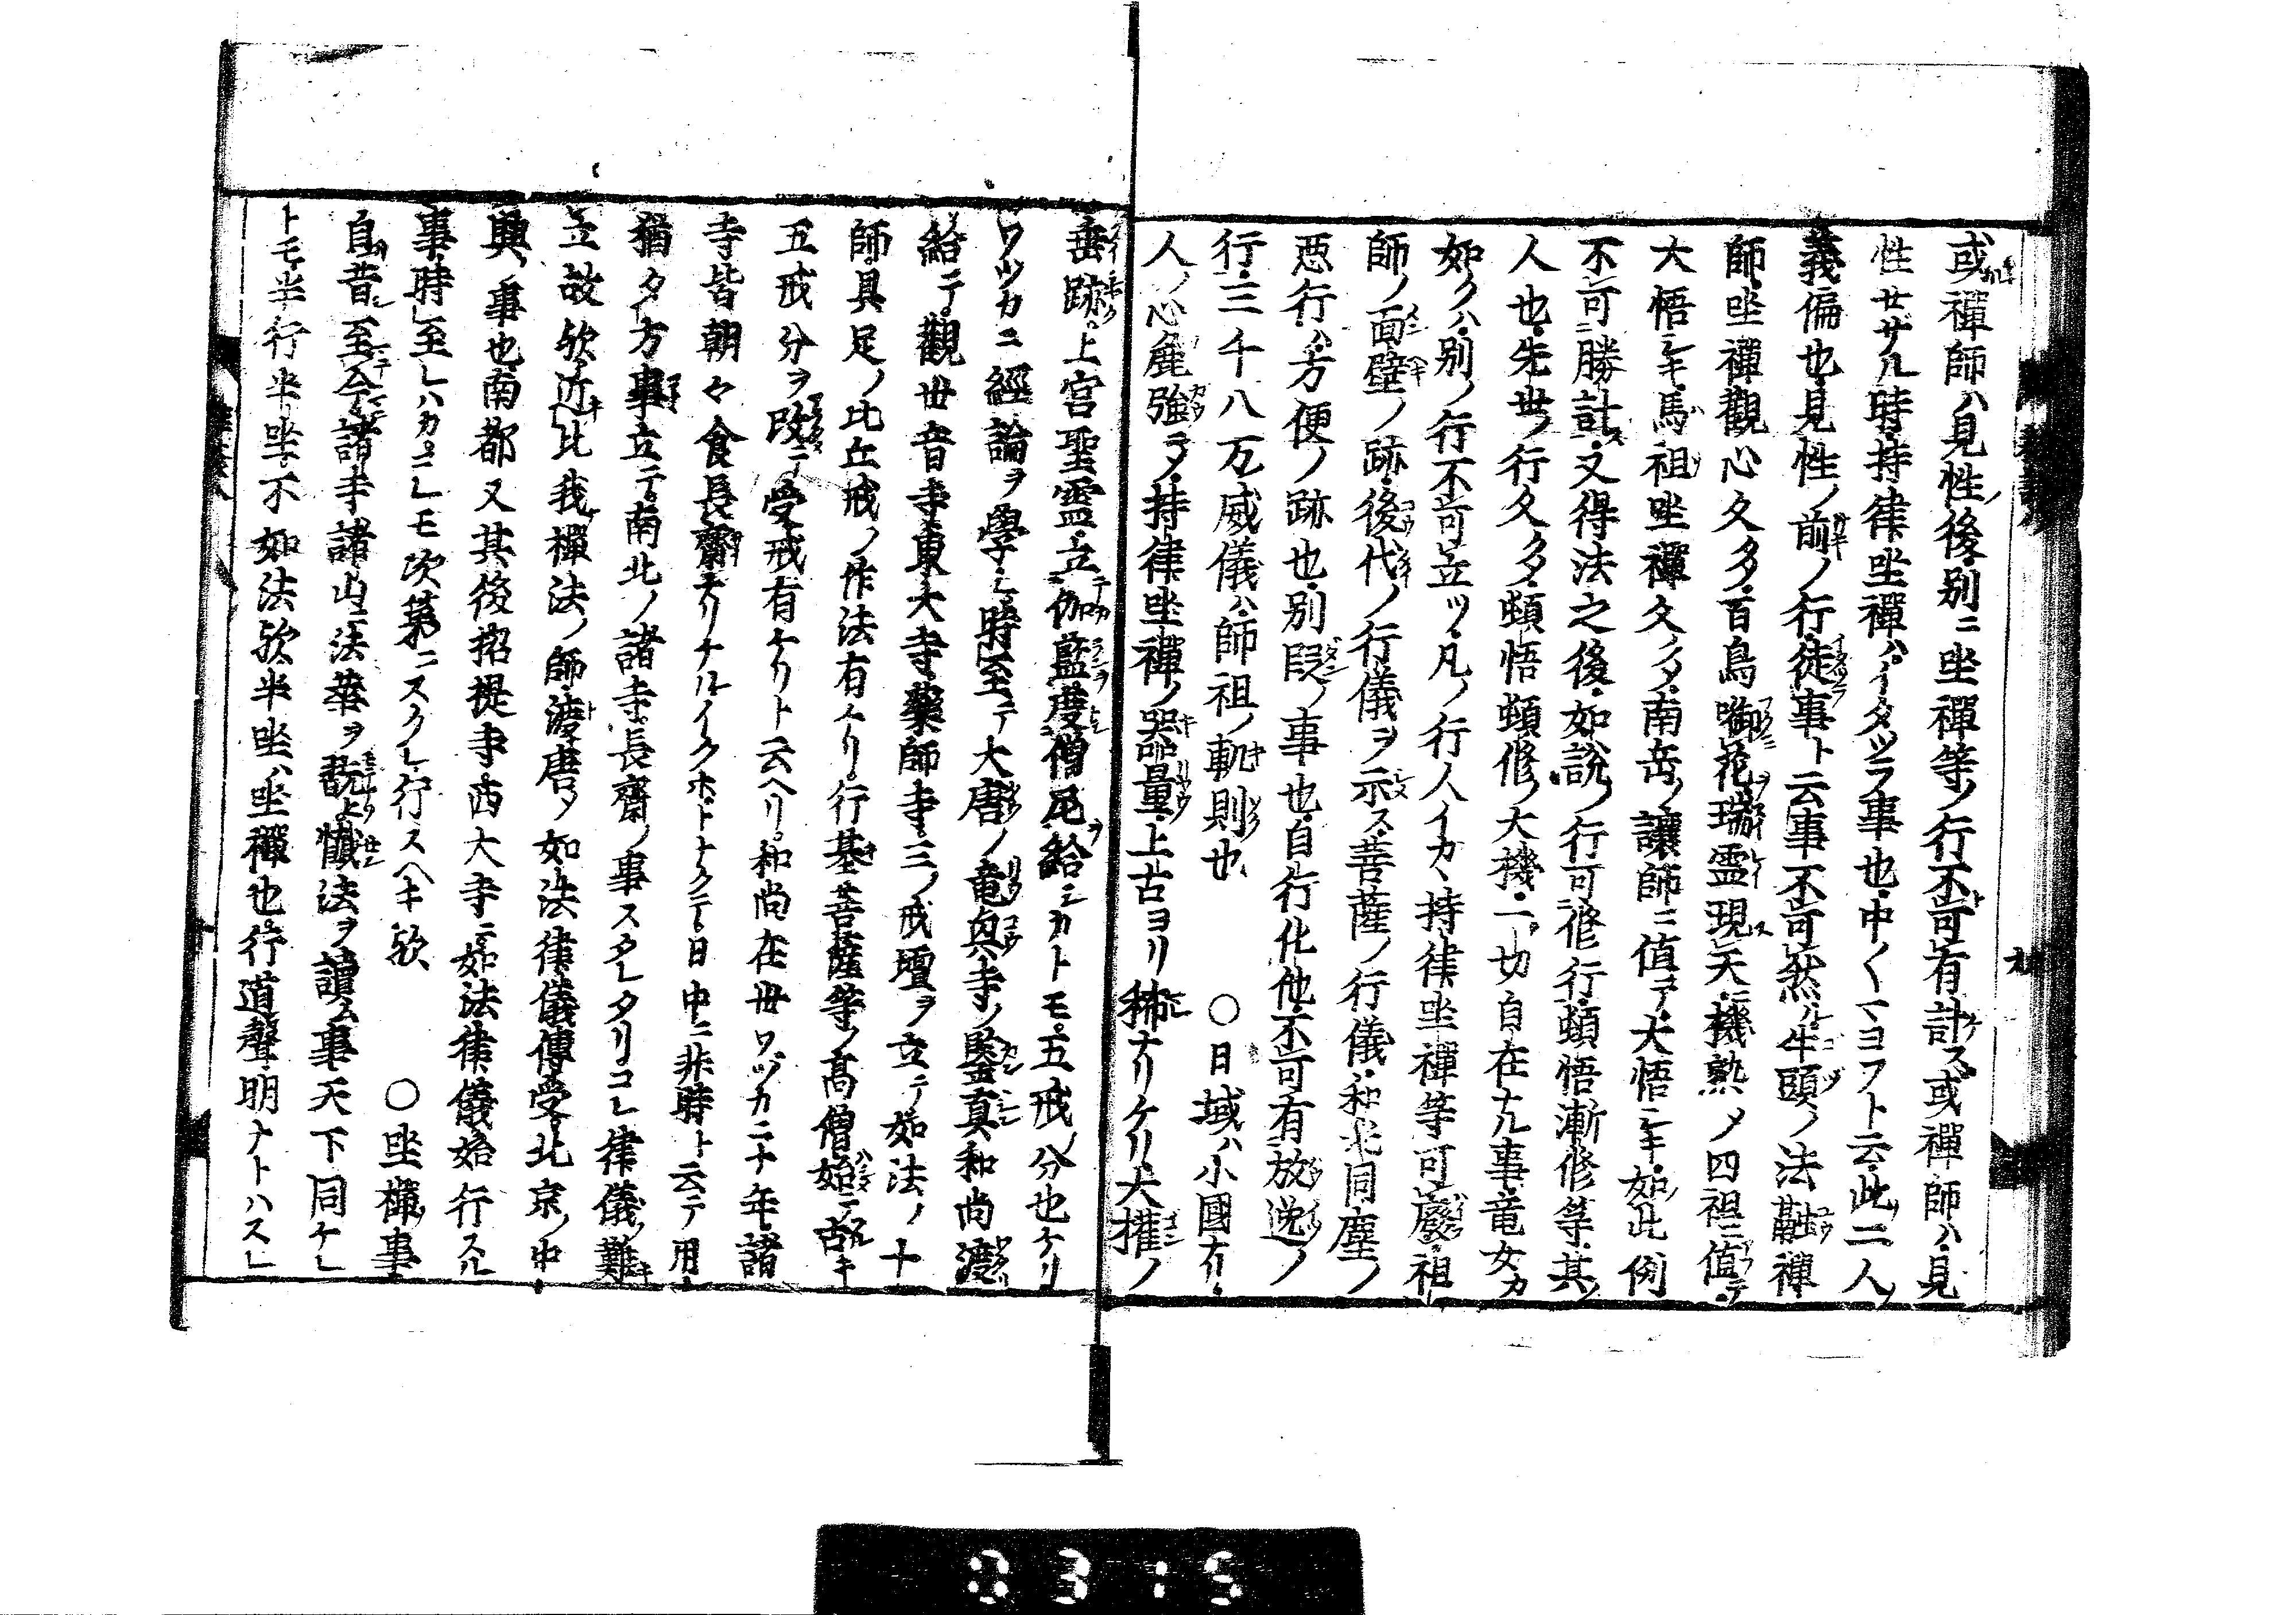 或禪師ハ見性ノ後別ニ坐禪等ノ行不可有計ス或禪師ハ見
性せサル時持律坐禪ハイタツラ事也中〱マヨフト云此二人ノ
義偏也見性ノ前ノ行徒事ト云事不可然牛頭ノ法融禪
師坐禪觀心久多百鳥啣花瑞霊現天機熟メ四祖ニ値テ
大悟シキ馬祖坐禪久ノタ南岳ノ讓師ニ値テ大悟シキ如此例
不可勝計又得法之後如說ノ行可修行頓悟漸修等其ノ
人也先世ノ行久多頓悟頓修ノ大機一切自在ナル事竜女カ
如クハ別ノ行不可立ツ凡ノ行人イカヽ持律坐禪等可癈祖
師ノ面壁ノ跡後代ノ行儀ヲ示ス菩薩ノ行儀和光同塵ノ
悪行ハ方便ノ跡也別段ノ事也自行化他不可有放逸ノ
行三千八万威儀ハ師祖ノ軌則也 〇日域ハ小國ナリ
人ノ心麁強ニ〆持律坐禪ノ器量上古ヨリ稀ナリケリ大權ノ
垂跡上宮聖霊立伽藍度僧尼給シカトモ五戒ノ分也ケリ
ワツカニ經論ヲ學シ時至テ大唐ノ竜興寺ノ鑒真和尚渡
給テ觀世音寺東大寺藥師寺三ノ戒壇ヲ立テ如法ノ十
師具足ノ比丘戒ノ作法有ケリ行基菩薩等ノ高僧始テ古キ
五戒分ヲ改テ受戒有ケリト云ヘリ和尚在世ワヅカニ十年諸
寺皆朝々食長齋ナリケルイクホドナクテ日中ニ非時ト云テ用ナ
猶タ方事立テ南北ノ諸寺長齋ノ事スタレタリコレ律儀ノ難キ
立故欤近比我禪法ノ師渡唐ノ如法律儀傳受北京ノ中
興ノ事也南都又其後招提寺西大寺ニ如法律儀始行スル
事時至レハカコレモ次第ニスクレ行スヘキ欤 〇坐禪ノ事
自昔至今諸寺諸山ニ法華ヲ翫ヒ懺法ヲ讀ム事天下同ケレ
トモ半行半坐不如法欤半坐ハ坐禪也行道聲明ナトハスレ